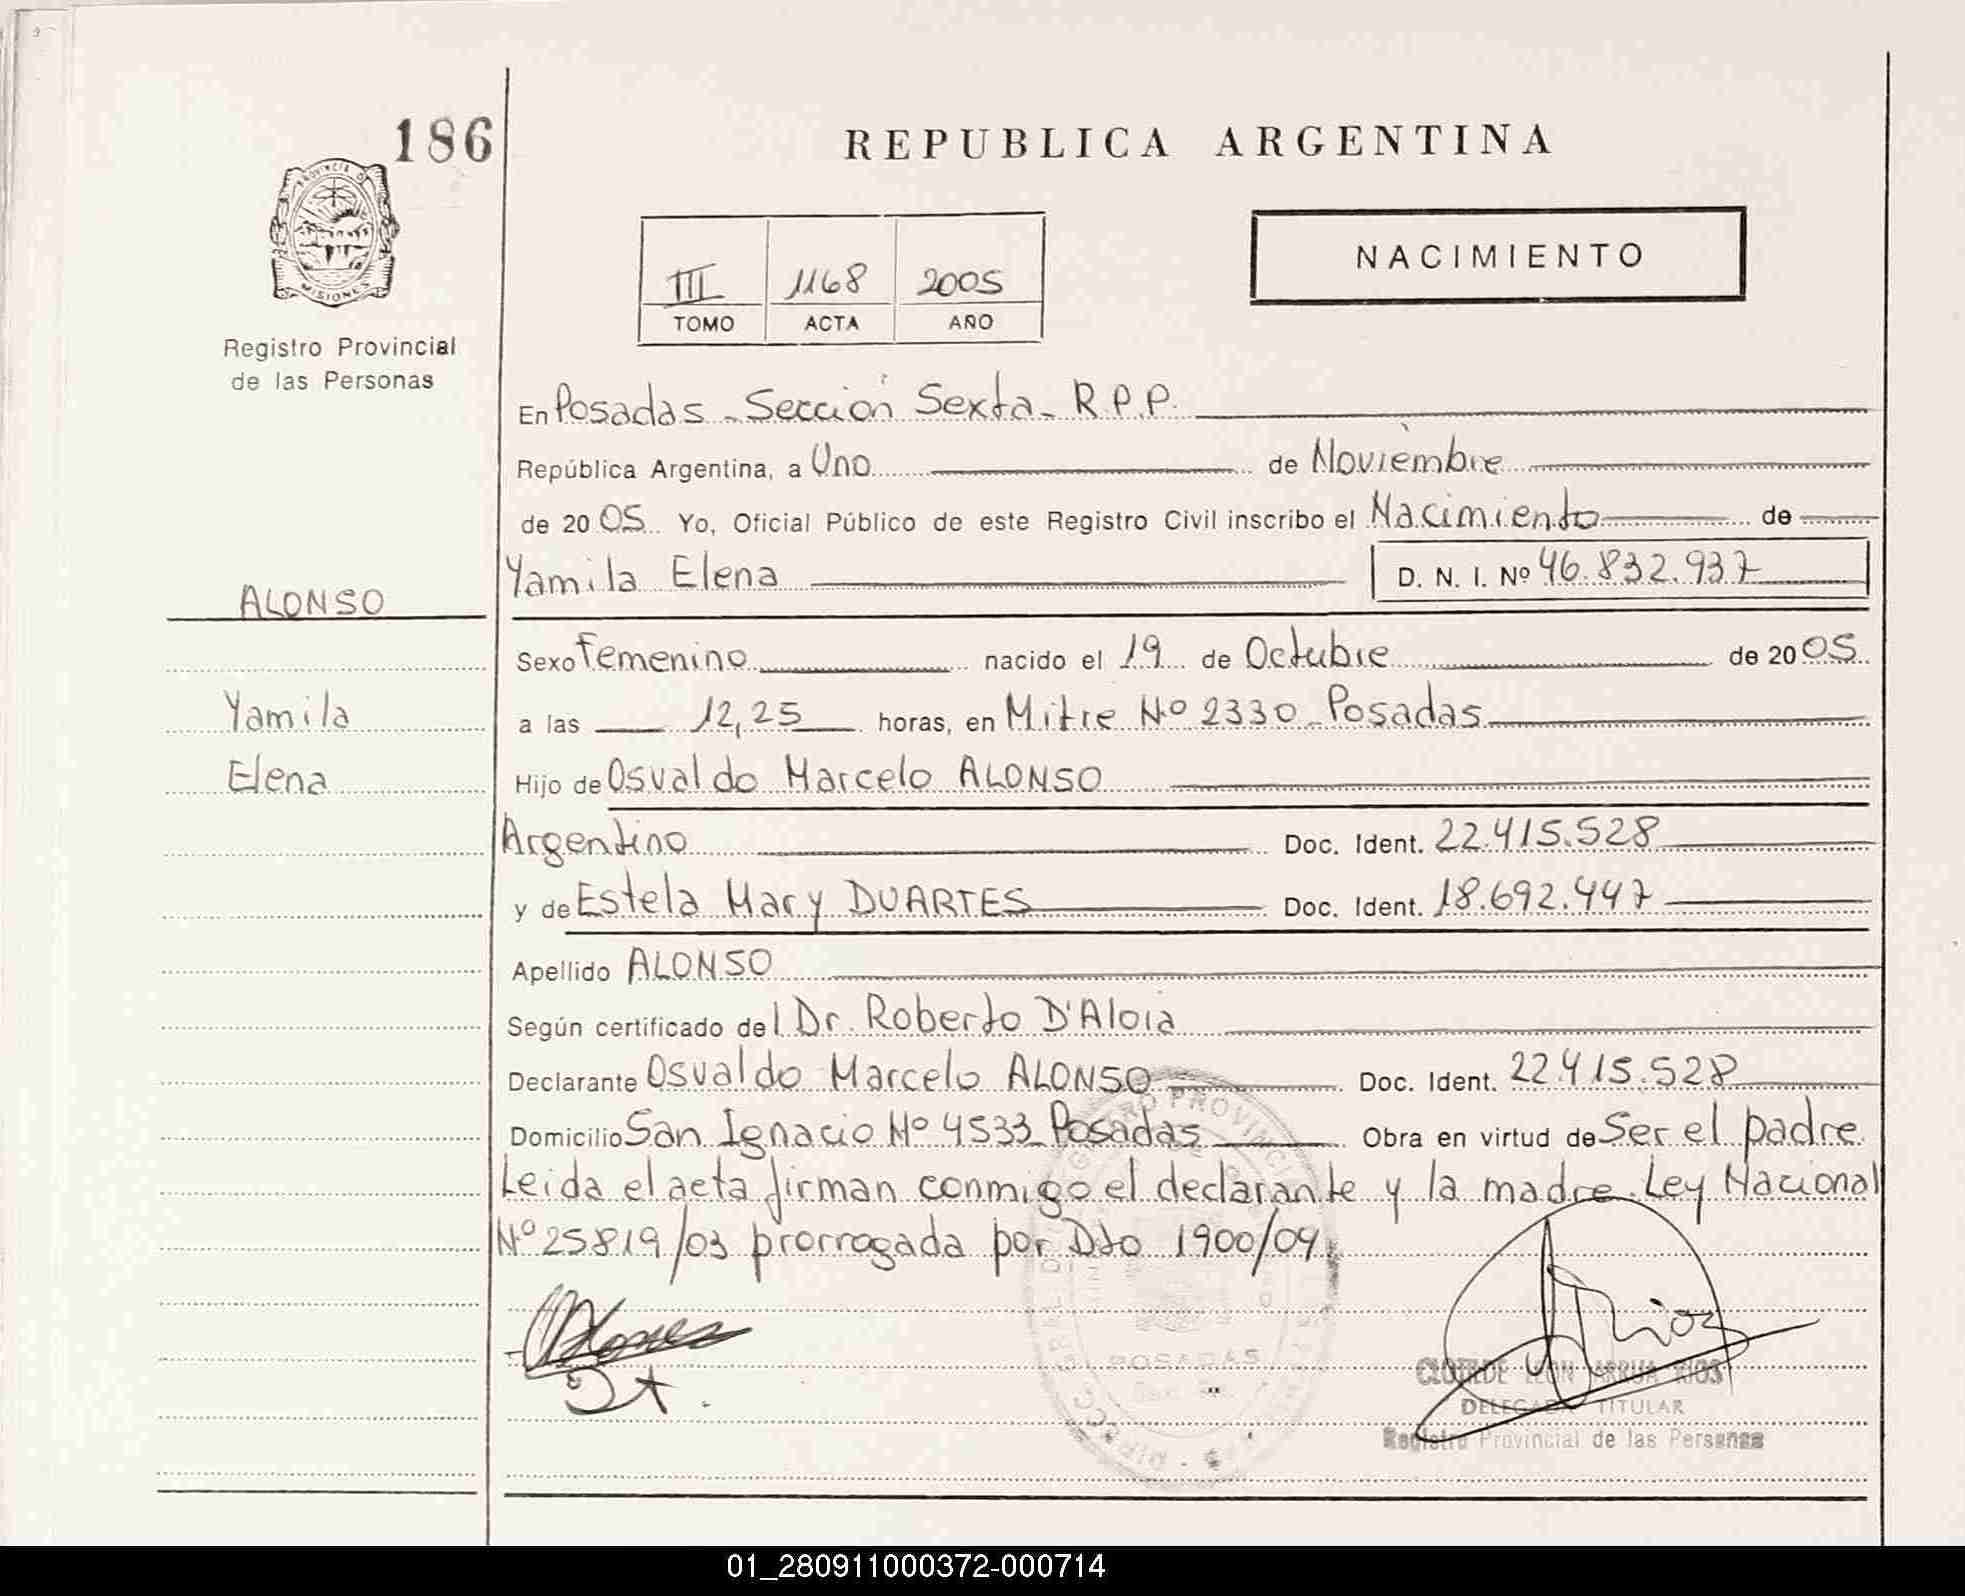 186
REPUBLICA ARGENTINA
PROVINCIA D
MISIONES
Registro Provincial
de las Personas
III 1168 2005
TOMO ACTA AÑO
NACIMIENTO
En Posadas - Sección Sexta - R.P.P.
República Argentina, a Uno de Noviembre
de 2005 Yo, Oficial Público de este Registro Civil inscribo el Nacimiento de
Yamila Elena D. N. I. Nº 46.832.937
ALONSO
Sexo Femenino nacido el 19 de Octubre de 2005
Yamila
a las 12,25 horas, en Mitre Nº 2330 - Posadas
Elena
Hijo de Osvaldo Marcelo ALONSO
Argentino Doc. Ident. 22.415.528
y de Estela Mary DUARTES Doc. Ident. 18.692.447
Apellido ALONSO
Según certificado del Dr. Roberto D'Aloia
Declarante Osvaldo Marcelo ALONSO Doc. Ident. 22.415.528
Domicilio San Ignacio Nº 4533 - Posadas Obra en virtud de Ser el padre.
Leida el acta firman conmigo el declarante y la madre. Ley Nacional
Nº 25819/03 prorrogada por Dto 1900/04.
POSADAS
CLOTILDE LEON ARRUA RIOS
DELEGADA TITULAR
Registro Provincial de las Personas
01_280911000372-000714